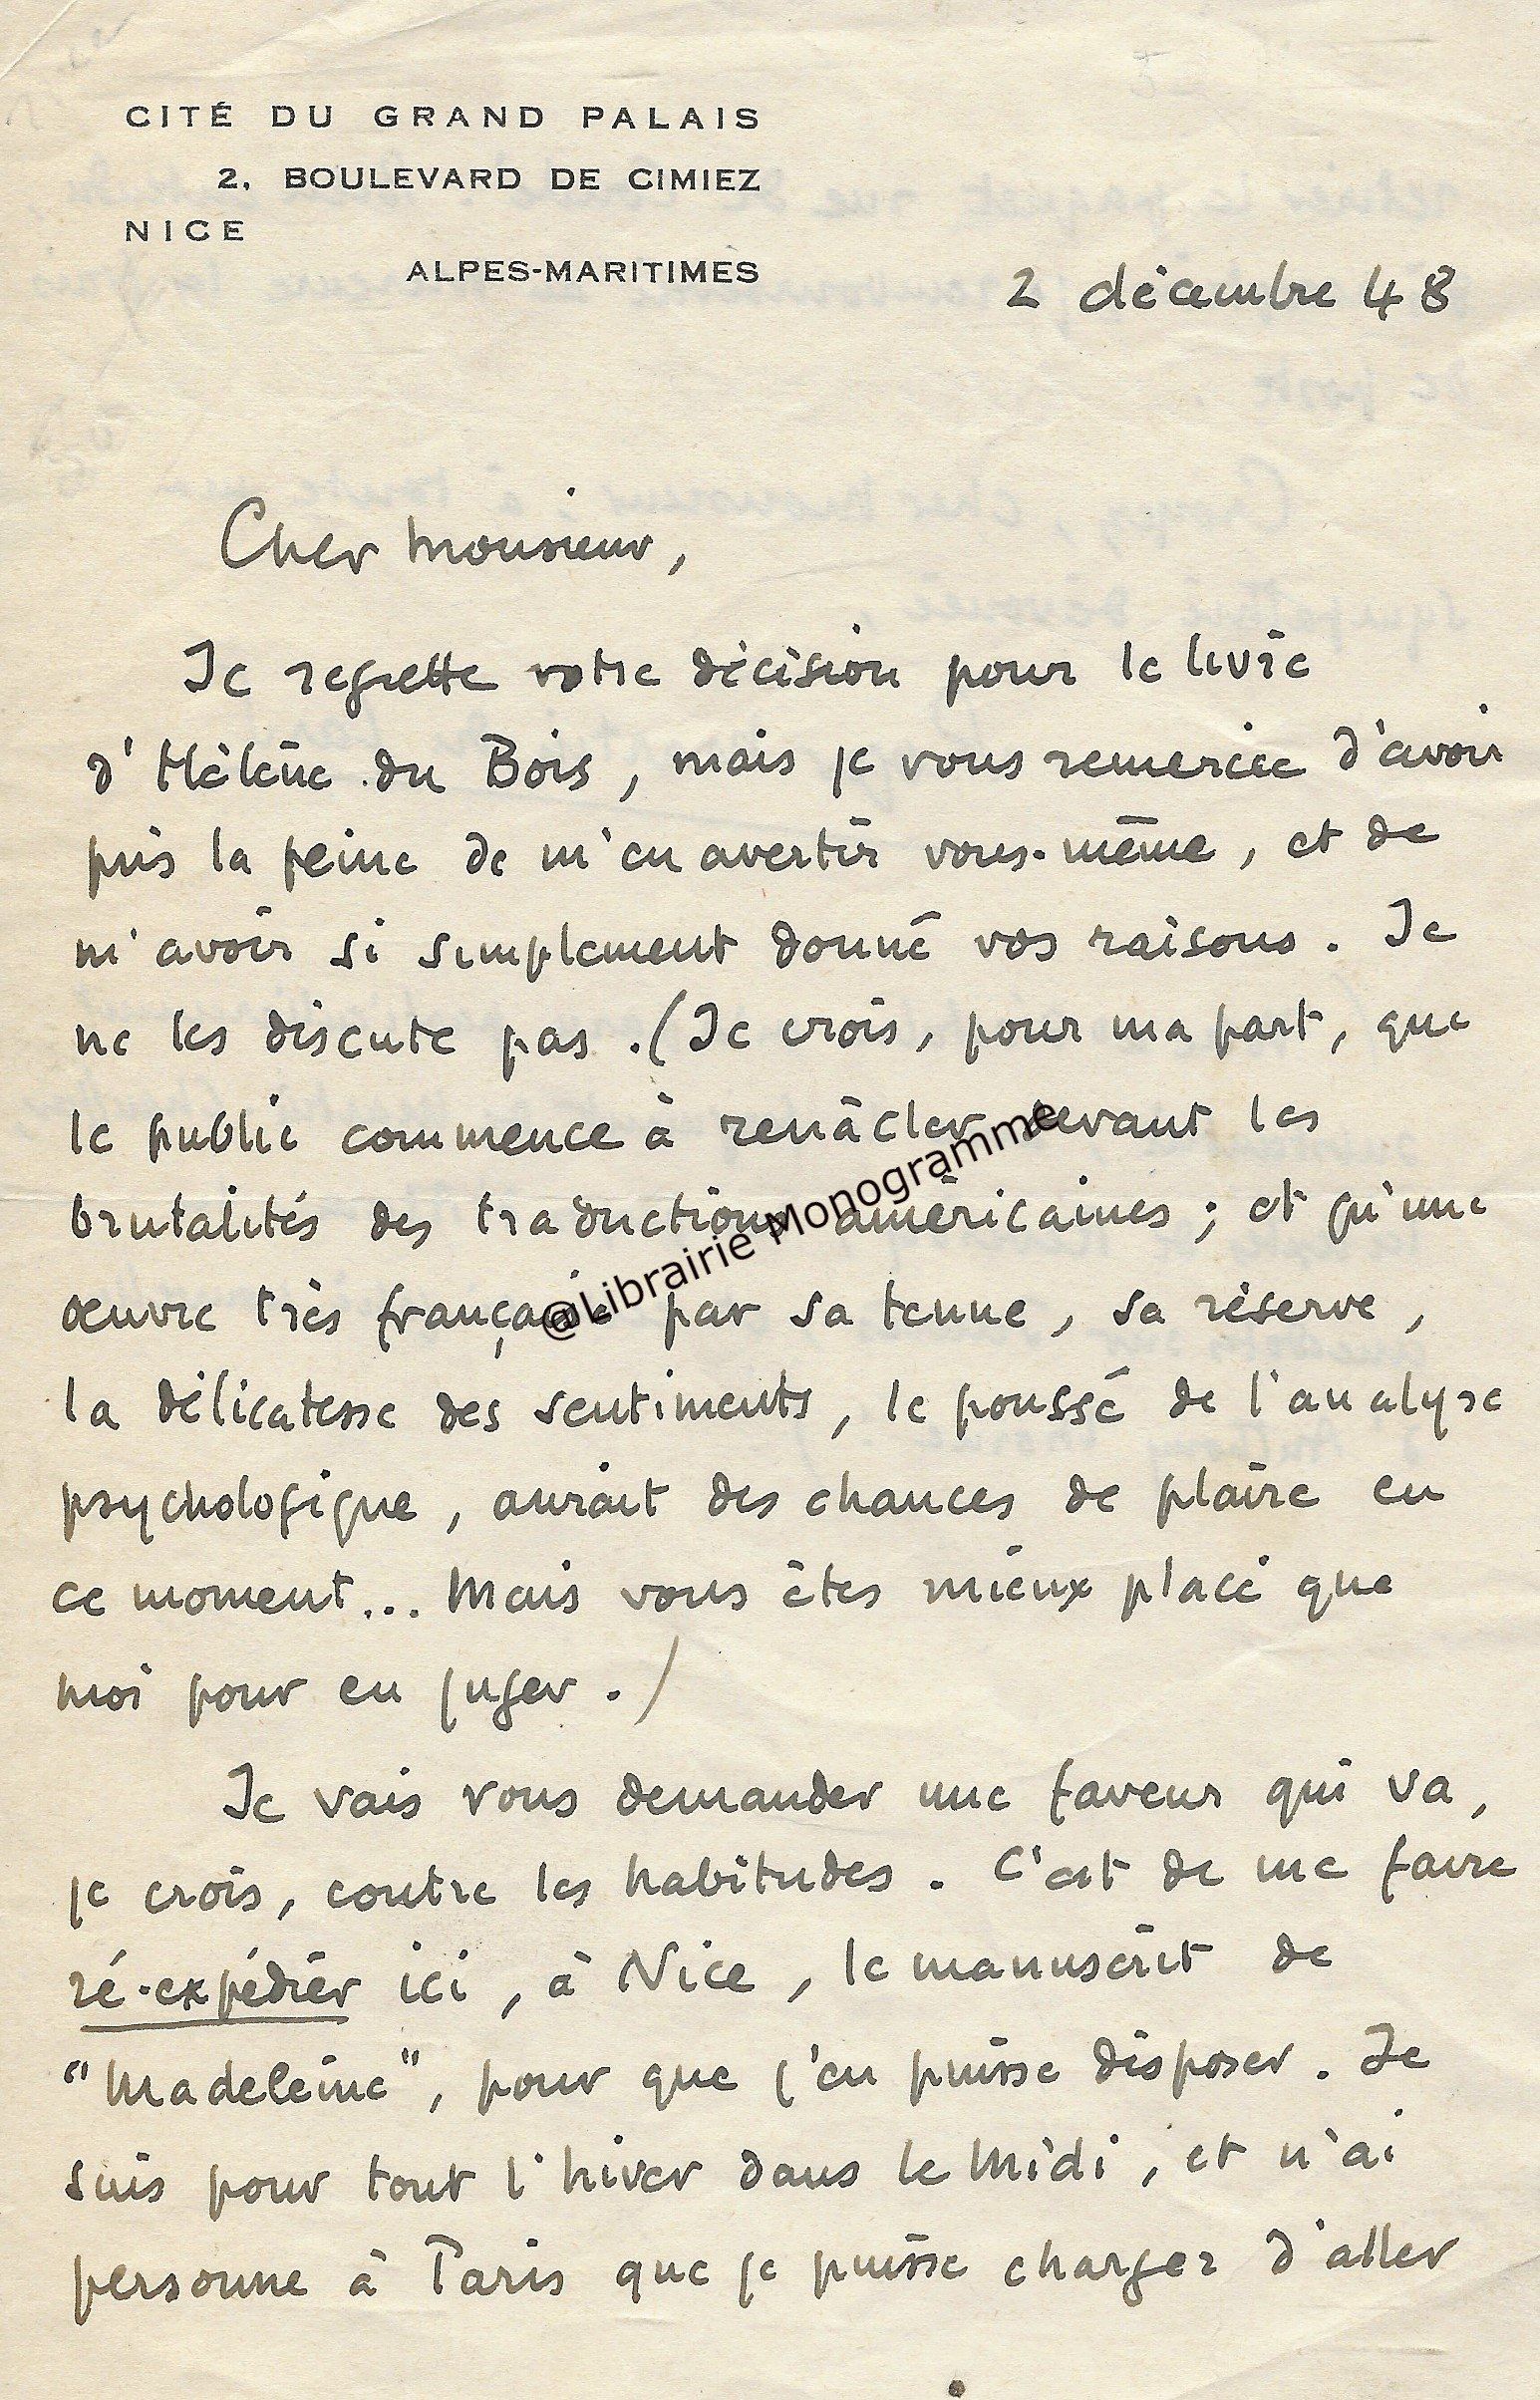 CITÉ DU GRAND PALAIS
2, BOULEVARD DE CIMIEZ
NICE
ALPES-MARITIMES
2 décembre 48
Cher Monsieur,
Je regrette votre décision pour le livre
d'Hélène du Bois, mais je vous remercie d'avoir
pris la peine de m'en avertir vous-même, et de
m'avoir si simplement donné vos raisons. Je
ne les discute pas. (Je crois, pour ma part, que
le public commence à renâcler devant les
brutalités des traductions américaines ; et qu'une
œuvre très française par sa tenue, sa réserve,
la délicatesse des sentiments, le poussé de l'analyse
psychologique, aurait des chances de plaire en
ce moment... Mais vous êtes mieux placé que
moi pour en juger.)
Je vais vous demander une faveur qui va,
je crois, contre les habitudes. C'est de me faire
ré-expédier ici, à Nice, le manuscrit de
"Madeleine", pour que j'en puisse disposer. Je
suis pour tout l'hiver dans le Midi, et n'ai
personne à Paris que je puisse charger d'aller
@Librairie Monogramme